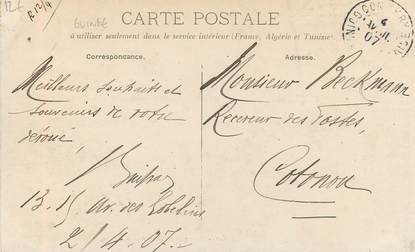 GUINÉE
R 12/4
CARTE POSTALE
à utiliser seulement dans le service intérieur (France, Algérie et Tunisie).
Correspondance.
Adresse.
Meilleurs souhaits et
souvenirs de votre
dévoué,
13-15 av. des Gobelins
2/4-07-
Monsieur Beckmann
Receveur des Postes,
Cotonou
07